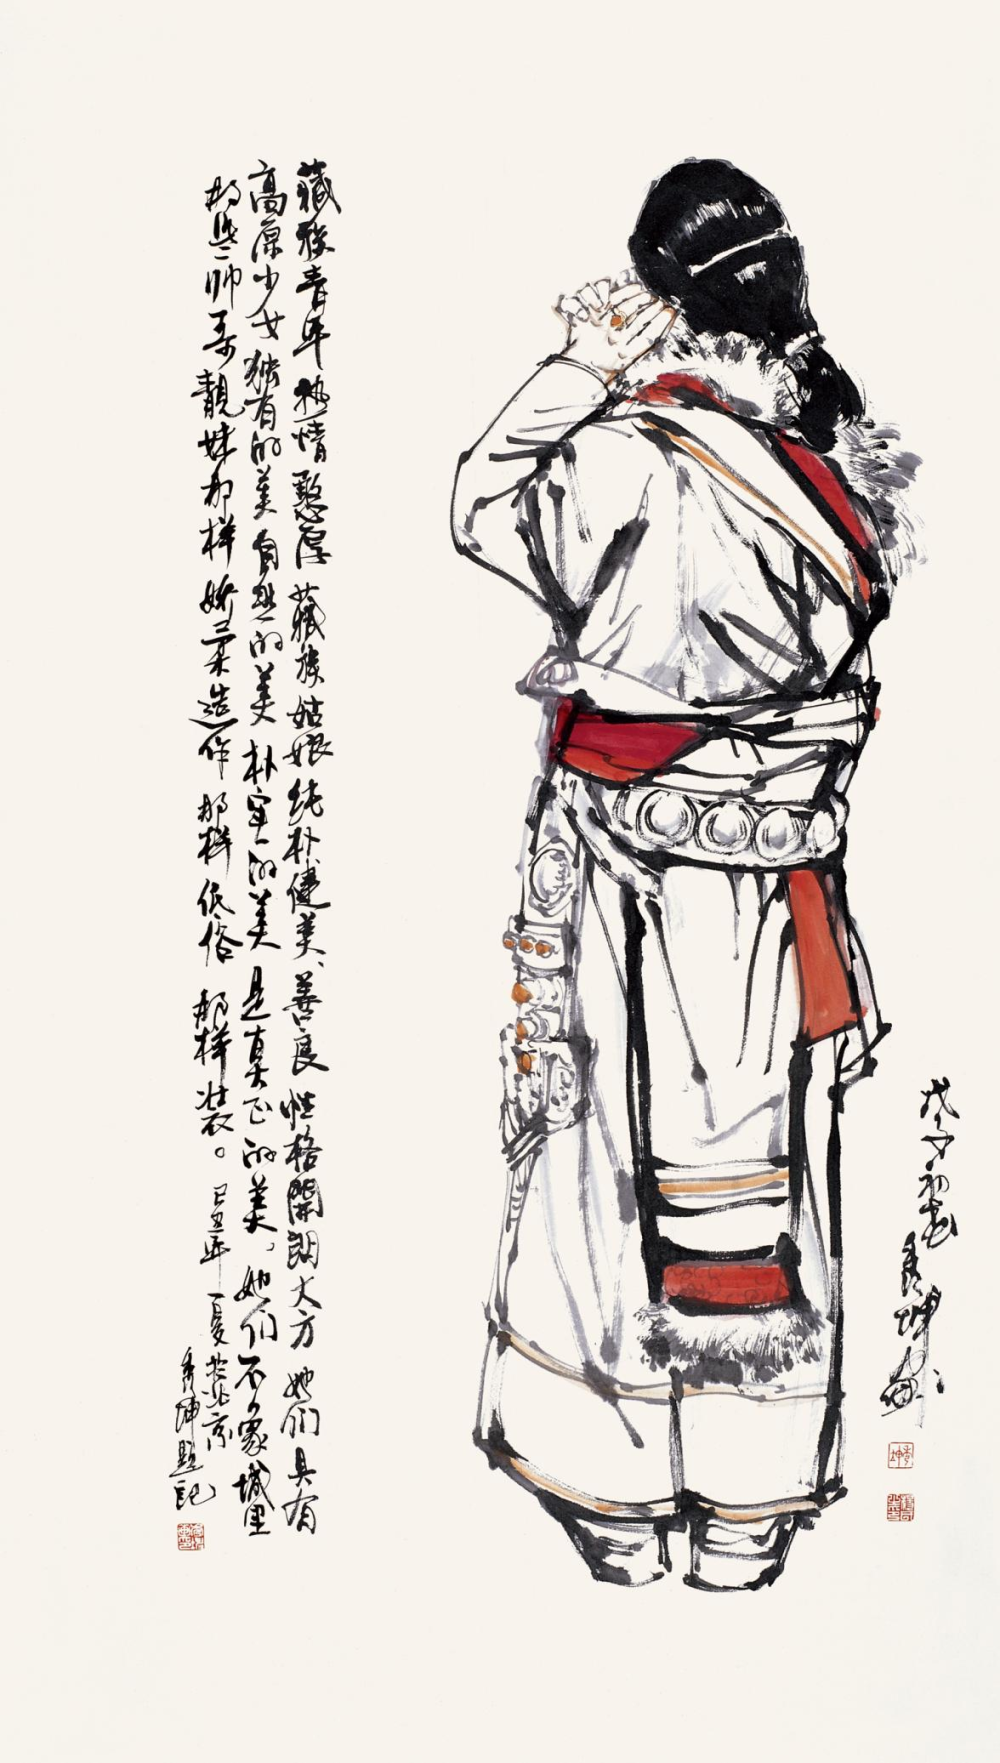 藏族青年热情憨厚藏族姑娘纯朴健美、善良性格開朗大方她们具有
高原少女独有的美自然的美朴实的美是真正的美，她们不象城里
那些帅哥靓妹那样娇柔造作那样低俗那样装。
己丑年夏於北京
秀坤题记
戊子初春秀坤画